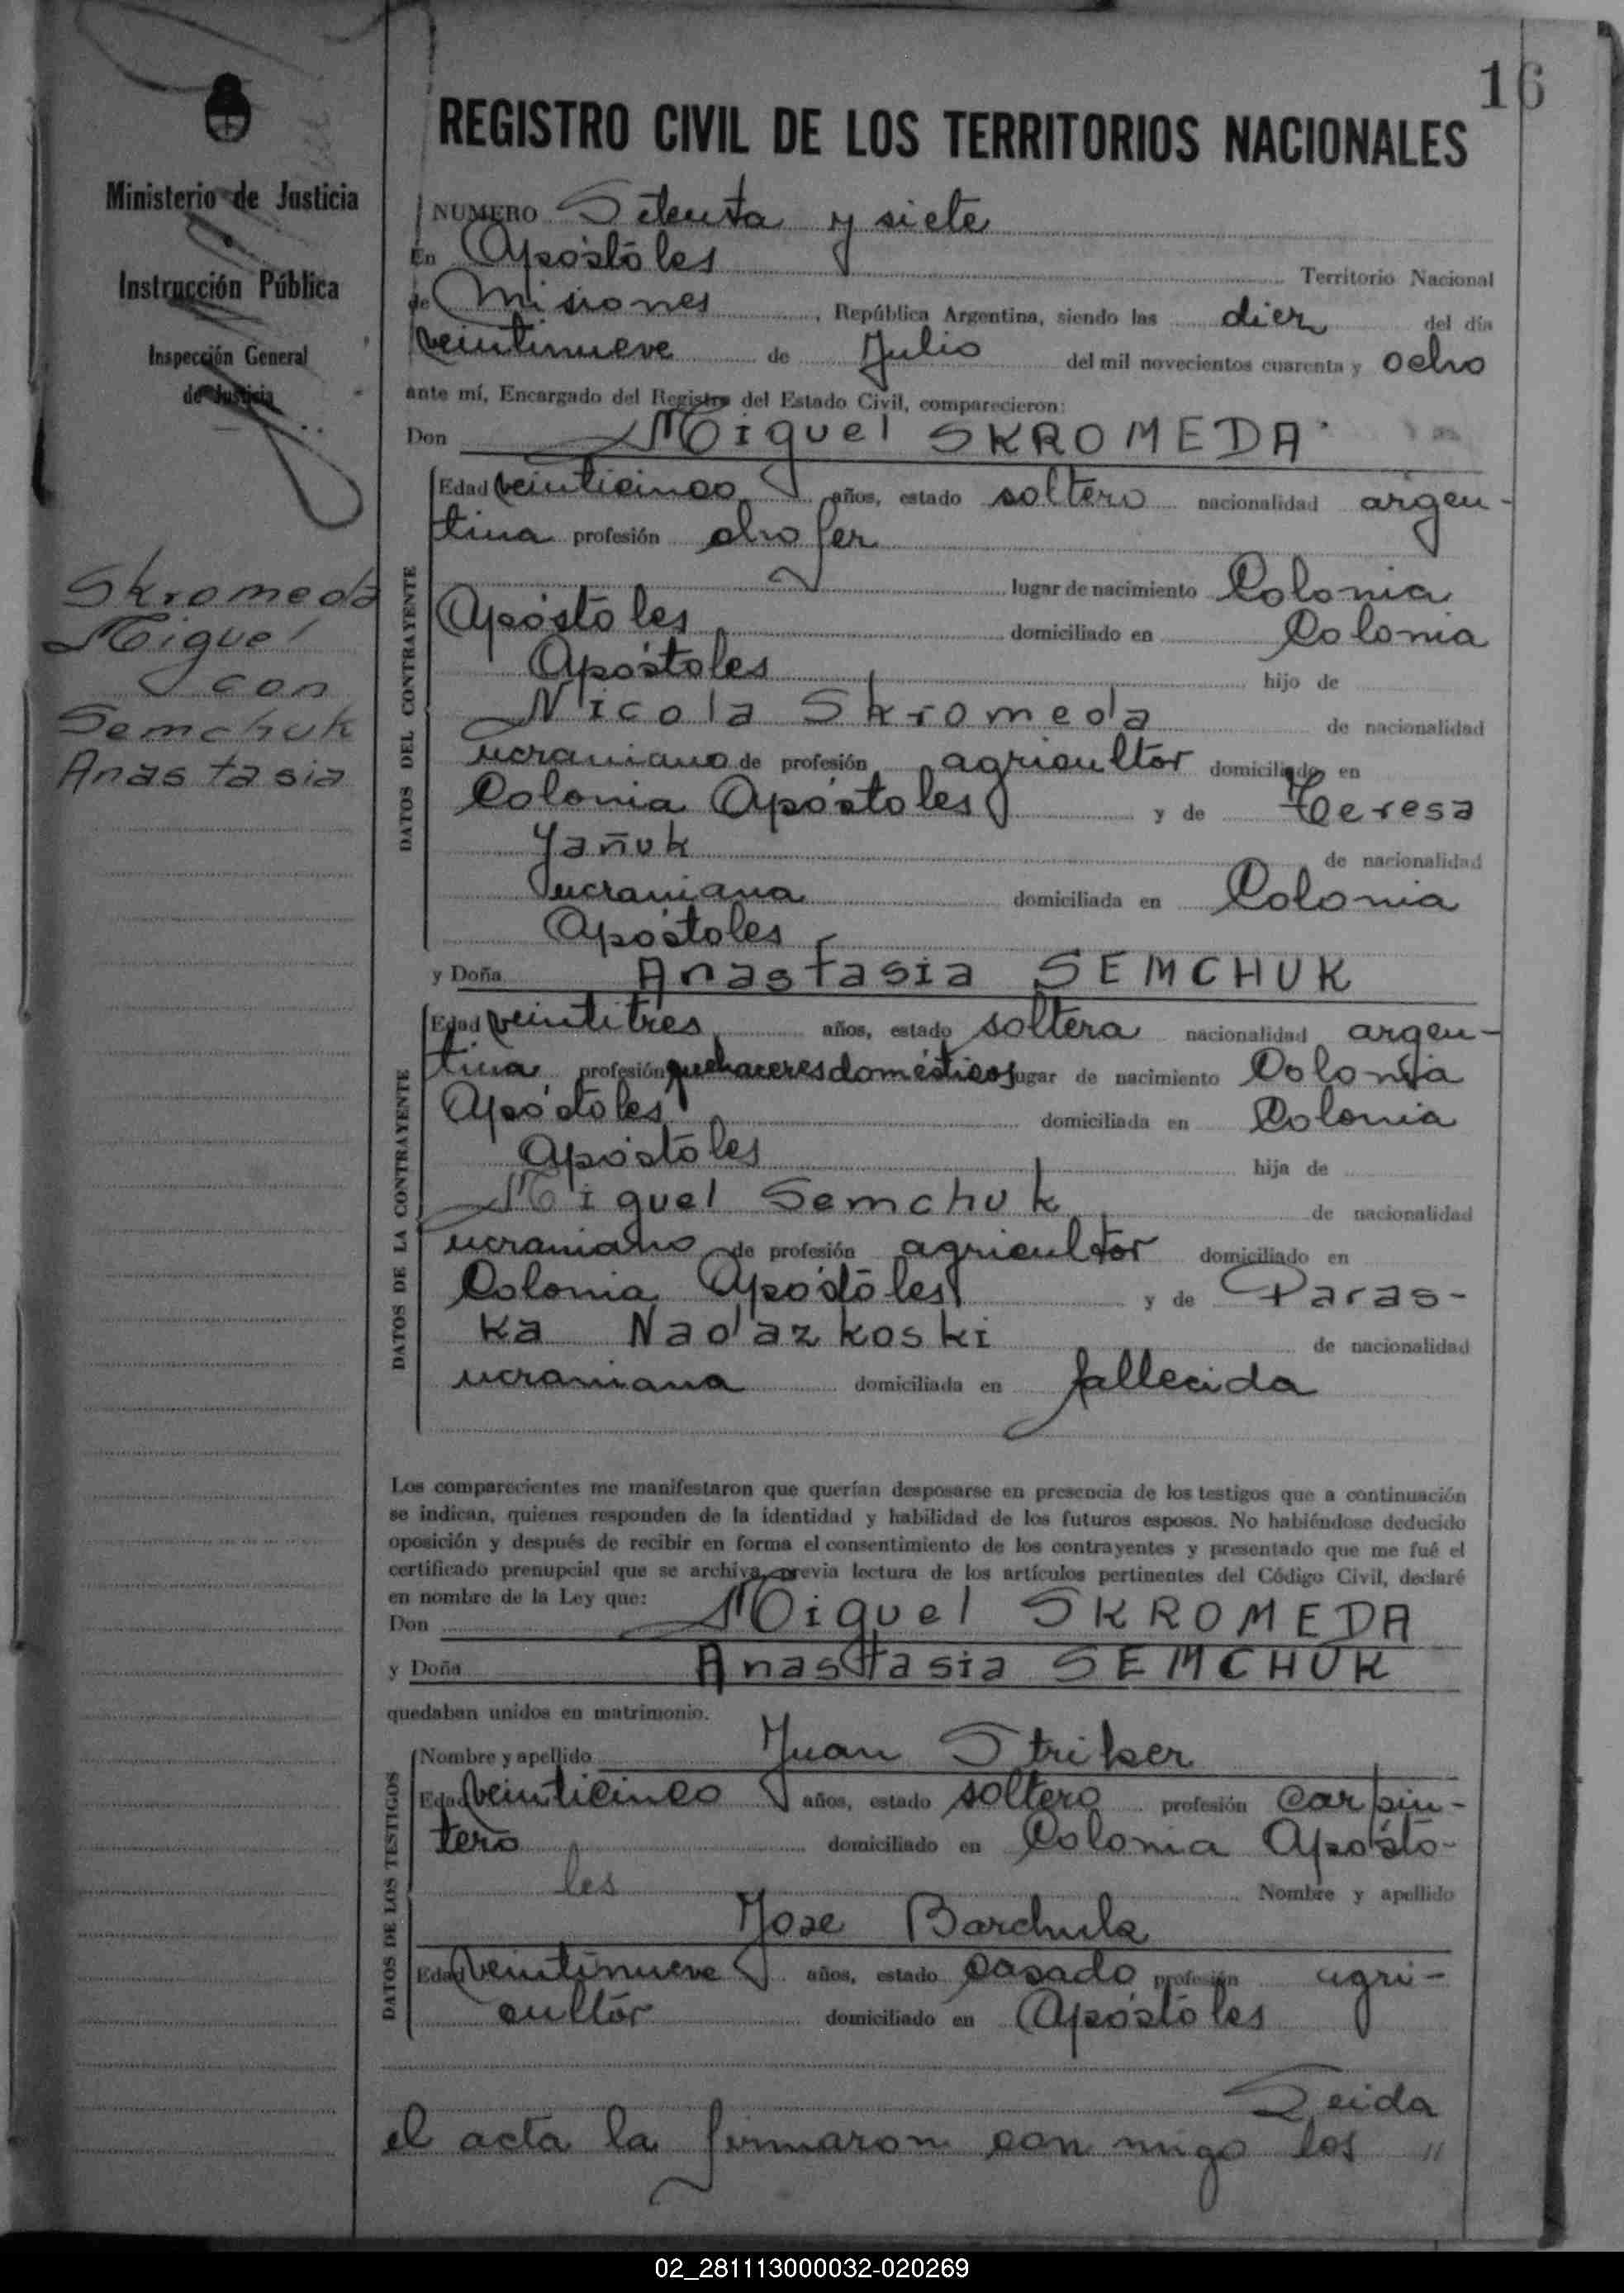 16
REGISTRO CIVIL DE LOS TERRITORIOS NACIONALES
Ministerio de Justicia
Instrucción Pública
Inspección General
de Justicia
Skromeda
Miguel
con
Semchuk
Anastasia
NUMERO Setenta y siete
En Apóstoles Territorio Nacional
de Misiones, República Argentina, siendo las diez del día
veintinueve de Julio del mil novecientos cuarenta y ocho
ante mí, Encargado del Registro del Estado Civil, comparecieron:
Don Miguel SKROMEDA
DATOS DEL CONTRAYENTE
Edad veinticinco años, estado soltero nacionalidad argen-
tina profesión chofer
lugar de nacimiento Colonia
Apóstoles domiciliado en Colonia
Apóstoles hijo de
Nicola Skromeda de nacionalidad
ucraniano de profesión agricultor domiciliado en
Colonia Apóstoles y de Teresa
Yañuk de nacionalidad
ucraniana domiciliada en Colonia
Apóstoles
y Doña Anastasia SEMCHUK
DATOS DE LA CONTRAYENTE
Edad veintitres años, estado soltera nacionalidad argen-
tina profesión quehaceres domésticos lugar de nacimiento Colonia
Apóstoles domiciliada en Colonia
Apóstoles hija de
Miguel Semchuk de nacionalidad
ucraniano de profesión agricultor domiciliado en
Colonia Apóstoles y de Paras-
ka Nadazkoski de nacionalidad
ucraniana domiciliada en fallecida
Los comparecientes me manifestaron que querían desposarse en presencia de los testigos que a continuación
se indican, quienes responden de la identidad y habilidad de los futuros esposos. No habiéndose deducido
oposición y después de recibir en forma el consentimiento de los contrayentes y presentado que me fué el
certificado prenupcial que se archiva, previa lectura de los artículos pertinentes del Código Civil, declaré
en nombre de la Ley que:
Don Miguel SKROMEDA
y Doña Anastasia SEMCHUK
quedaban unidos en matrimonio.
DATOS DE LOS TESTIGOS
Nombre y apellido Juan Striker
Edad veinticinco años, estado soltero profesión carpin-
tero domiciliado en Colonia Aposto-
les Nombre y apellido
Jose Barchuk
Edad veintinueve años, estado casado profesión agri-
cultor domiciliado en Apóstoles
Leida
el acta la firmaron con migo los "
02_281113000032-020269